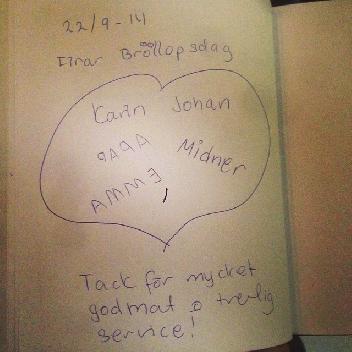 22/9-14
Firar Bröllopsdag
Karin Johan
PAPA Midner
AMME
Tack för mycket
god mat o trevlig
service!